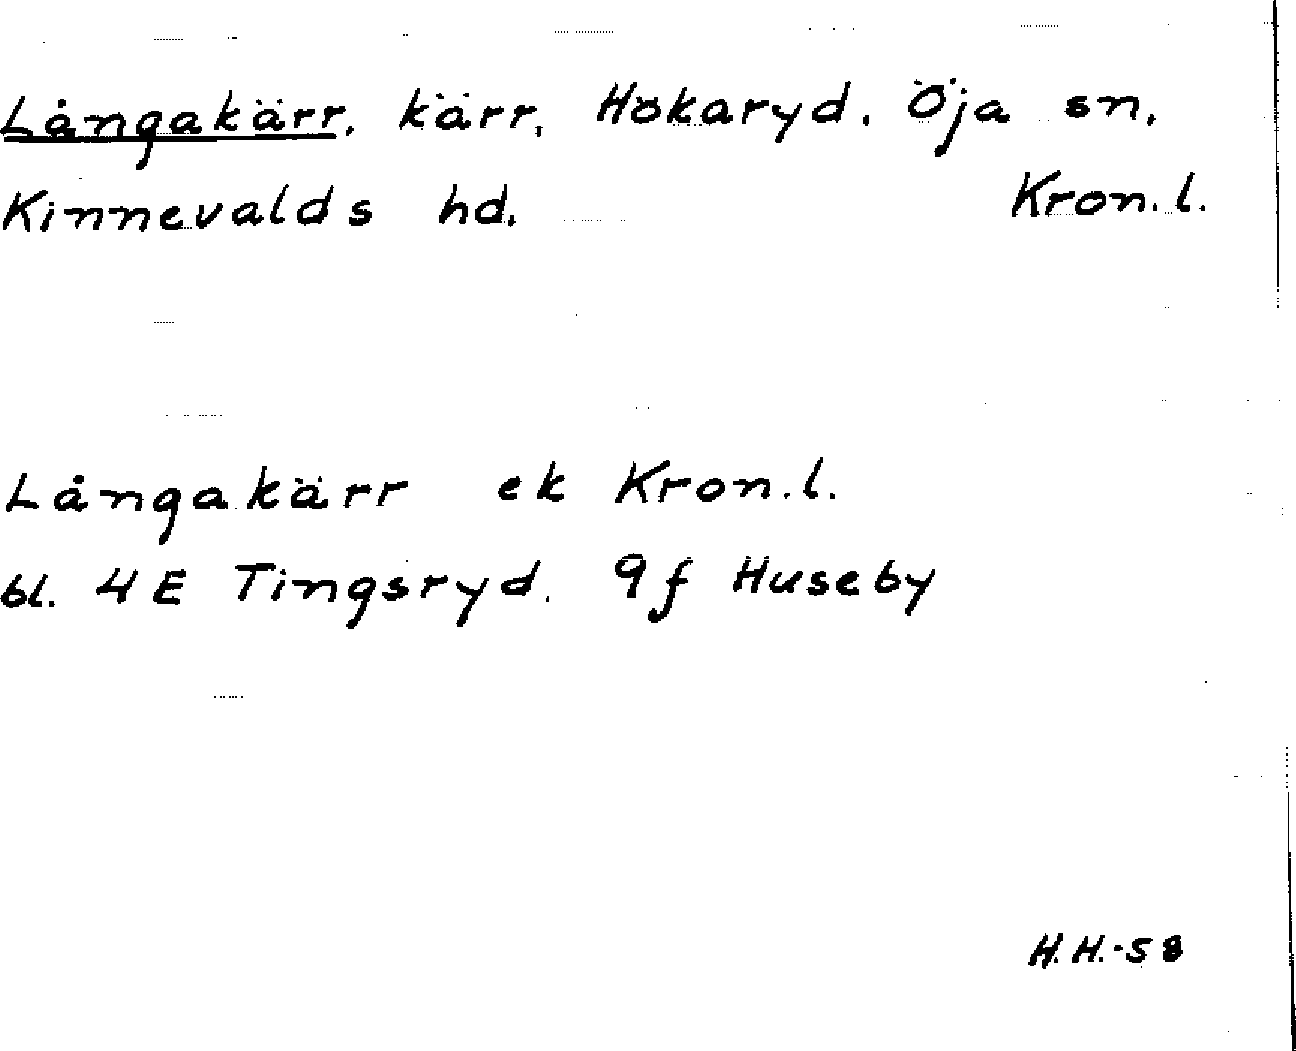 Långakärr, kärr, Hökaryd. Öja sn,
Kinnevalds hd. Kron. l.
Långakärr ek Kron. l.
bl. 4E Tingsryd. 9f Huseby
H.H.-58